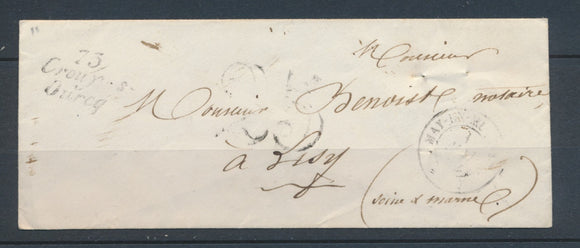 73
Crouy-s-
Ourcq
Monsieur
Monsieur Benoist notaire,
à Lisy
MAY-EN-
(seine & marne).